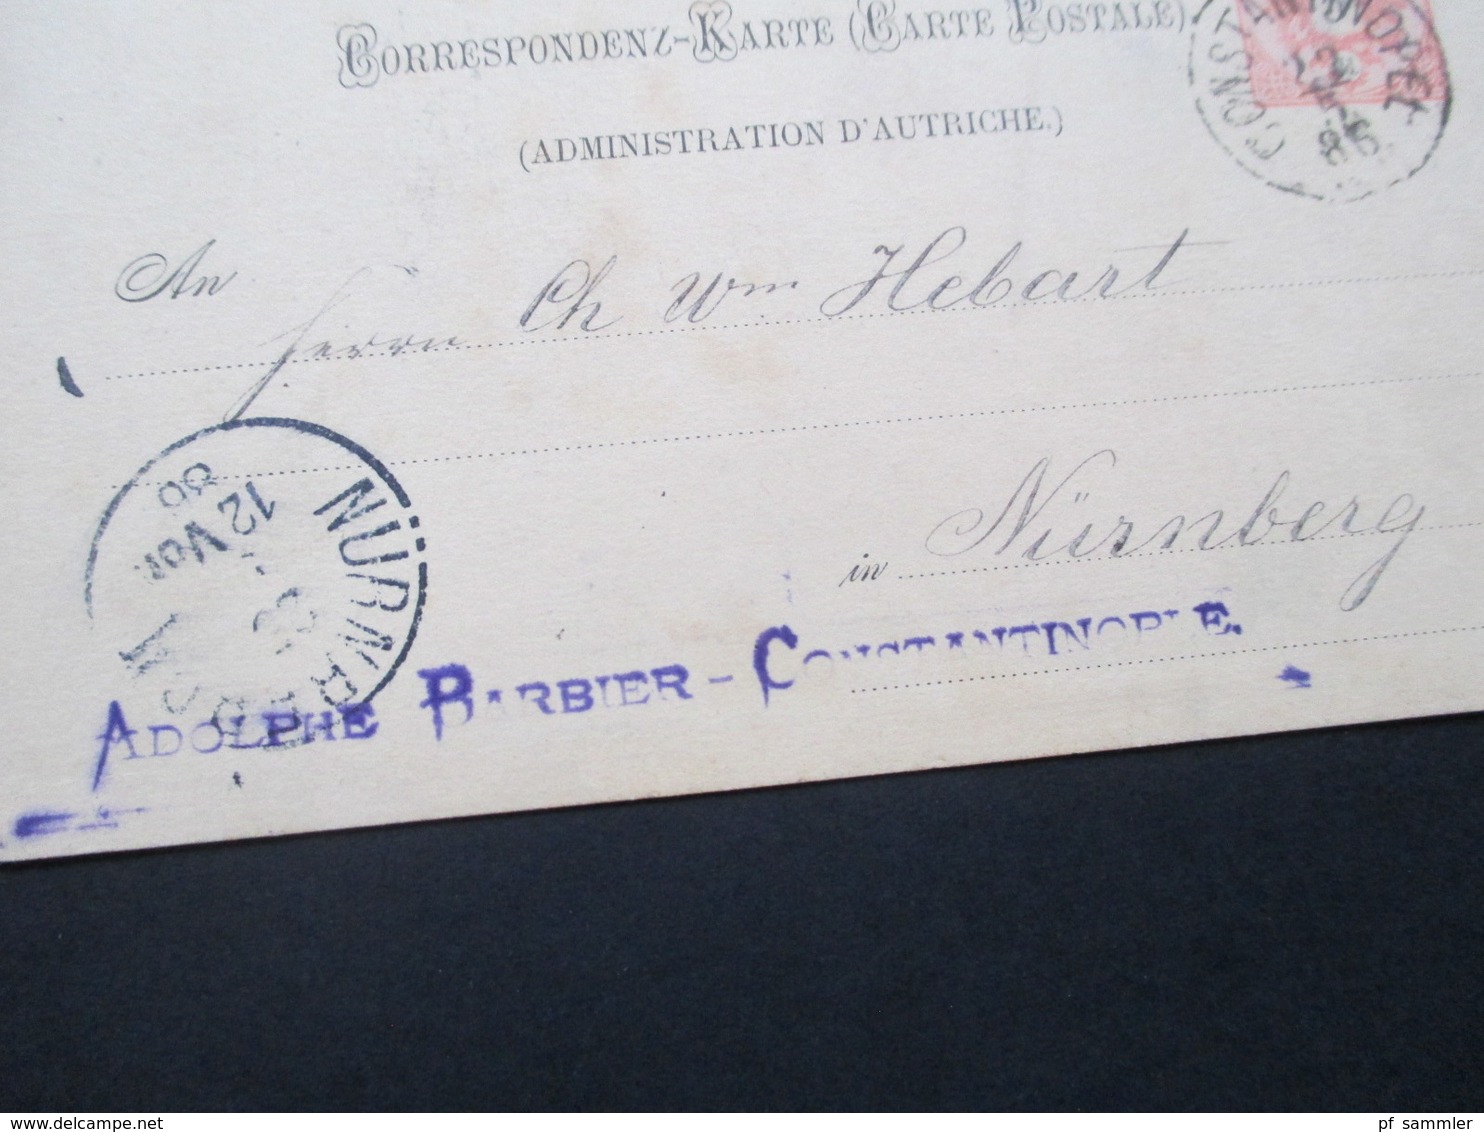 CORRESPONDENZ-KARTE (CARTE POSTALE)
(ADMINISTRATION D'AUTRICHE.)
CONSTANTINOPEL
86
An
Herrn Ch Wm Hebart
in Nürnberg
NÜRNBERG
12 Vor.
86
ADOLPHE BARBIER - CONSTANTINOPLE.
pf_sammler